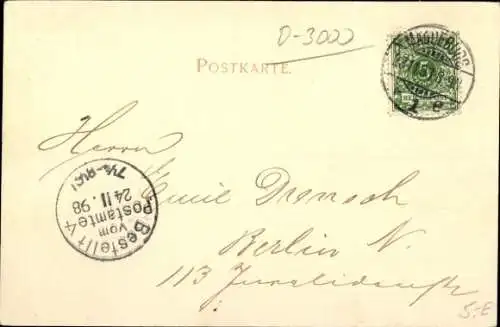 D-3000
POSTKARTE.
MAGDEBURG
5
1 e
Herrn
Emil Drensch
Berlin N.
113 Invalidenstr
Bestellt
vom
Postamte 4
24 11. 98
S-E